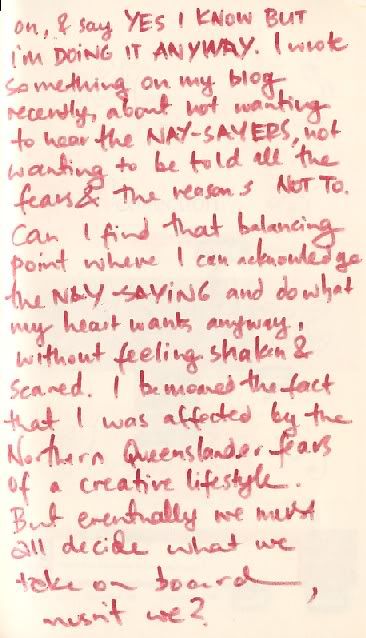 on, & say YES I KNOW BUT
I'M DOING IT ANYWAY. I wrote
something on my blog
recently, about not wanting
to hear the NAY-SAYERS, not
wanting to be told all the
fears & the reasons NOT TO.
Can I find that balancing
point where I can acknowledge
the NAY-SAYING and do what
my heart wants anyway,
without feeling shaken &
scared. I bemoaned the fact
that I was affected by the
Northern Queenslander fears
of a creative lifestyle.
But eventually we must
all decide what we
take on board,
musn't we?